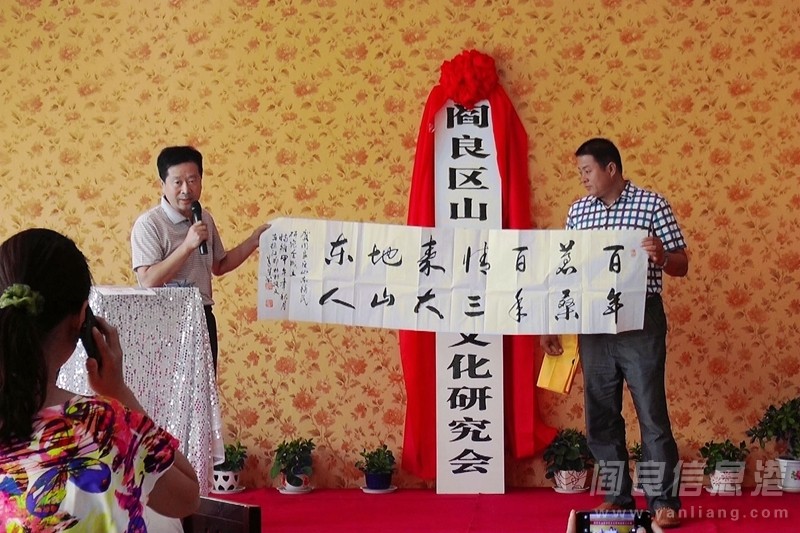 阎良区山
文化研究会
百年
苍桑
百年
情三
秦大
地山
东人
阎良信息港
www.yanliang.com